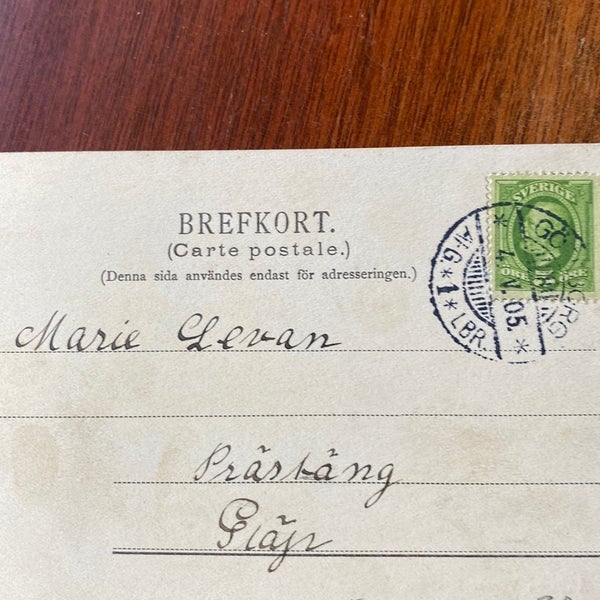 BREFKORT.
(Carte postale.)
(Denna sida användes endast för adresseringen.)
SVERIGE
AFG*1*LBR.
05
Marie Levan
Prästäng